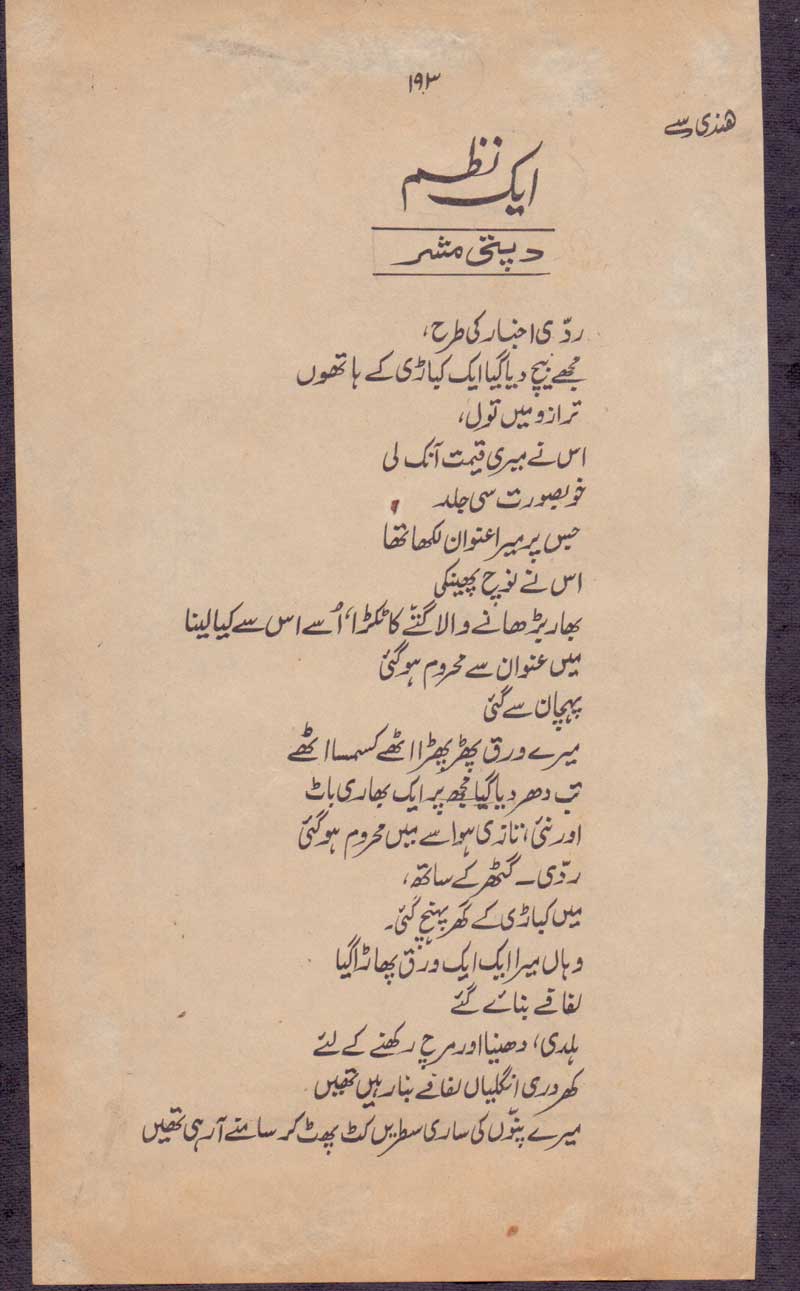 ۱۹۳
ھندی سے
ایک نظم
دپتی مشر
ردّی اخبار کی طرح،
مجھے بیچ دیا گیا ایک کباڑی کے ہاتھوں
ترازو میں تول،
اس نے میری قیمت آنک لی
خوبصورت سی جلد
جس پر میرا عنوان لکھا تھا
اس نے نوچ پھینکی
بھار بڑھانے والا گتّے کا ٹکڑا، اُسے اس سے کیا لینا
میں عنوان سے محروم ہو گئی
پہچان سے گئی
میرے ورق پھڑپھڑا اٹھے کسمسا اٹھے
تب دھر دیا گیا مجھ پر ایک بھاری باٹ
اور نئی، تازی ہوا سے میں محروم ہو گئی
ردّی ۔ گٹھر کے ساتھ،
میں کباڑی کے گھر پہنچ گئی۔
وہاں میرا ایک ایک ورق پھاڑا گیا
لفافے بنائے گئے
ہلدی، دھنیا اور مرچ رکھنے کے لئے
کھردری انگلیاں لفافے بنا رہیں تھیں
میرے پنّوں کی ساری سطریں کٹ پھٹ کر سامنے آ رہی تھیں